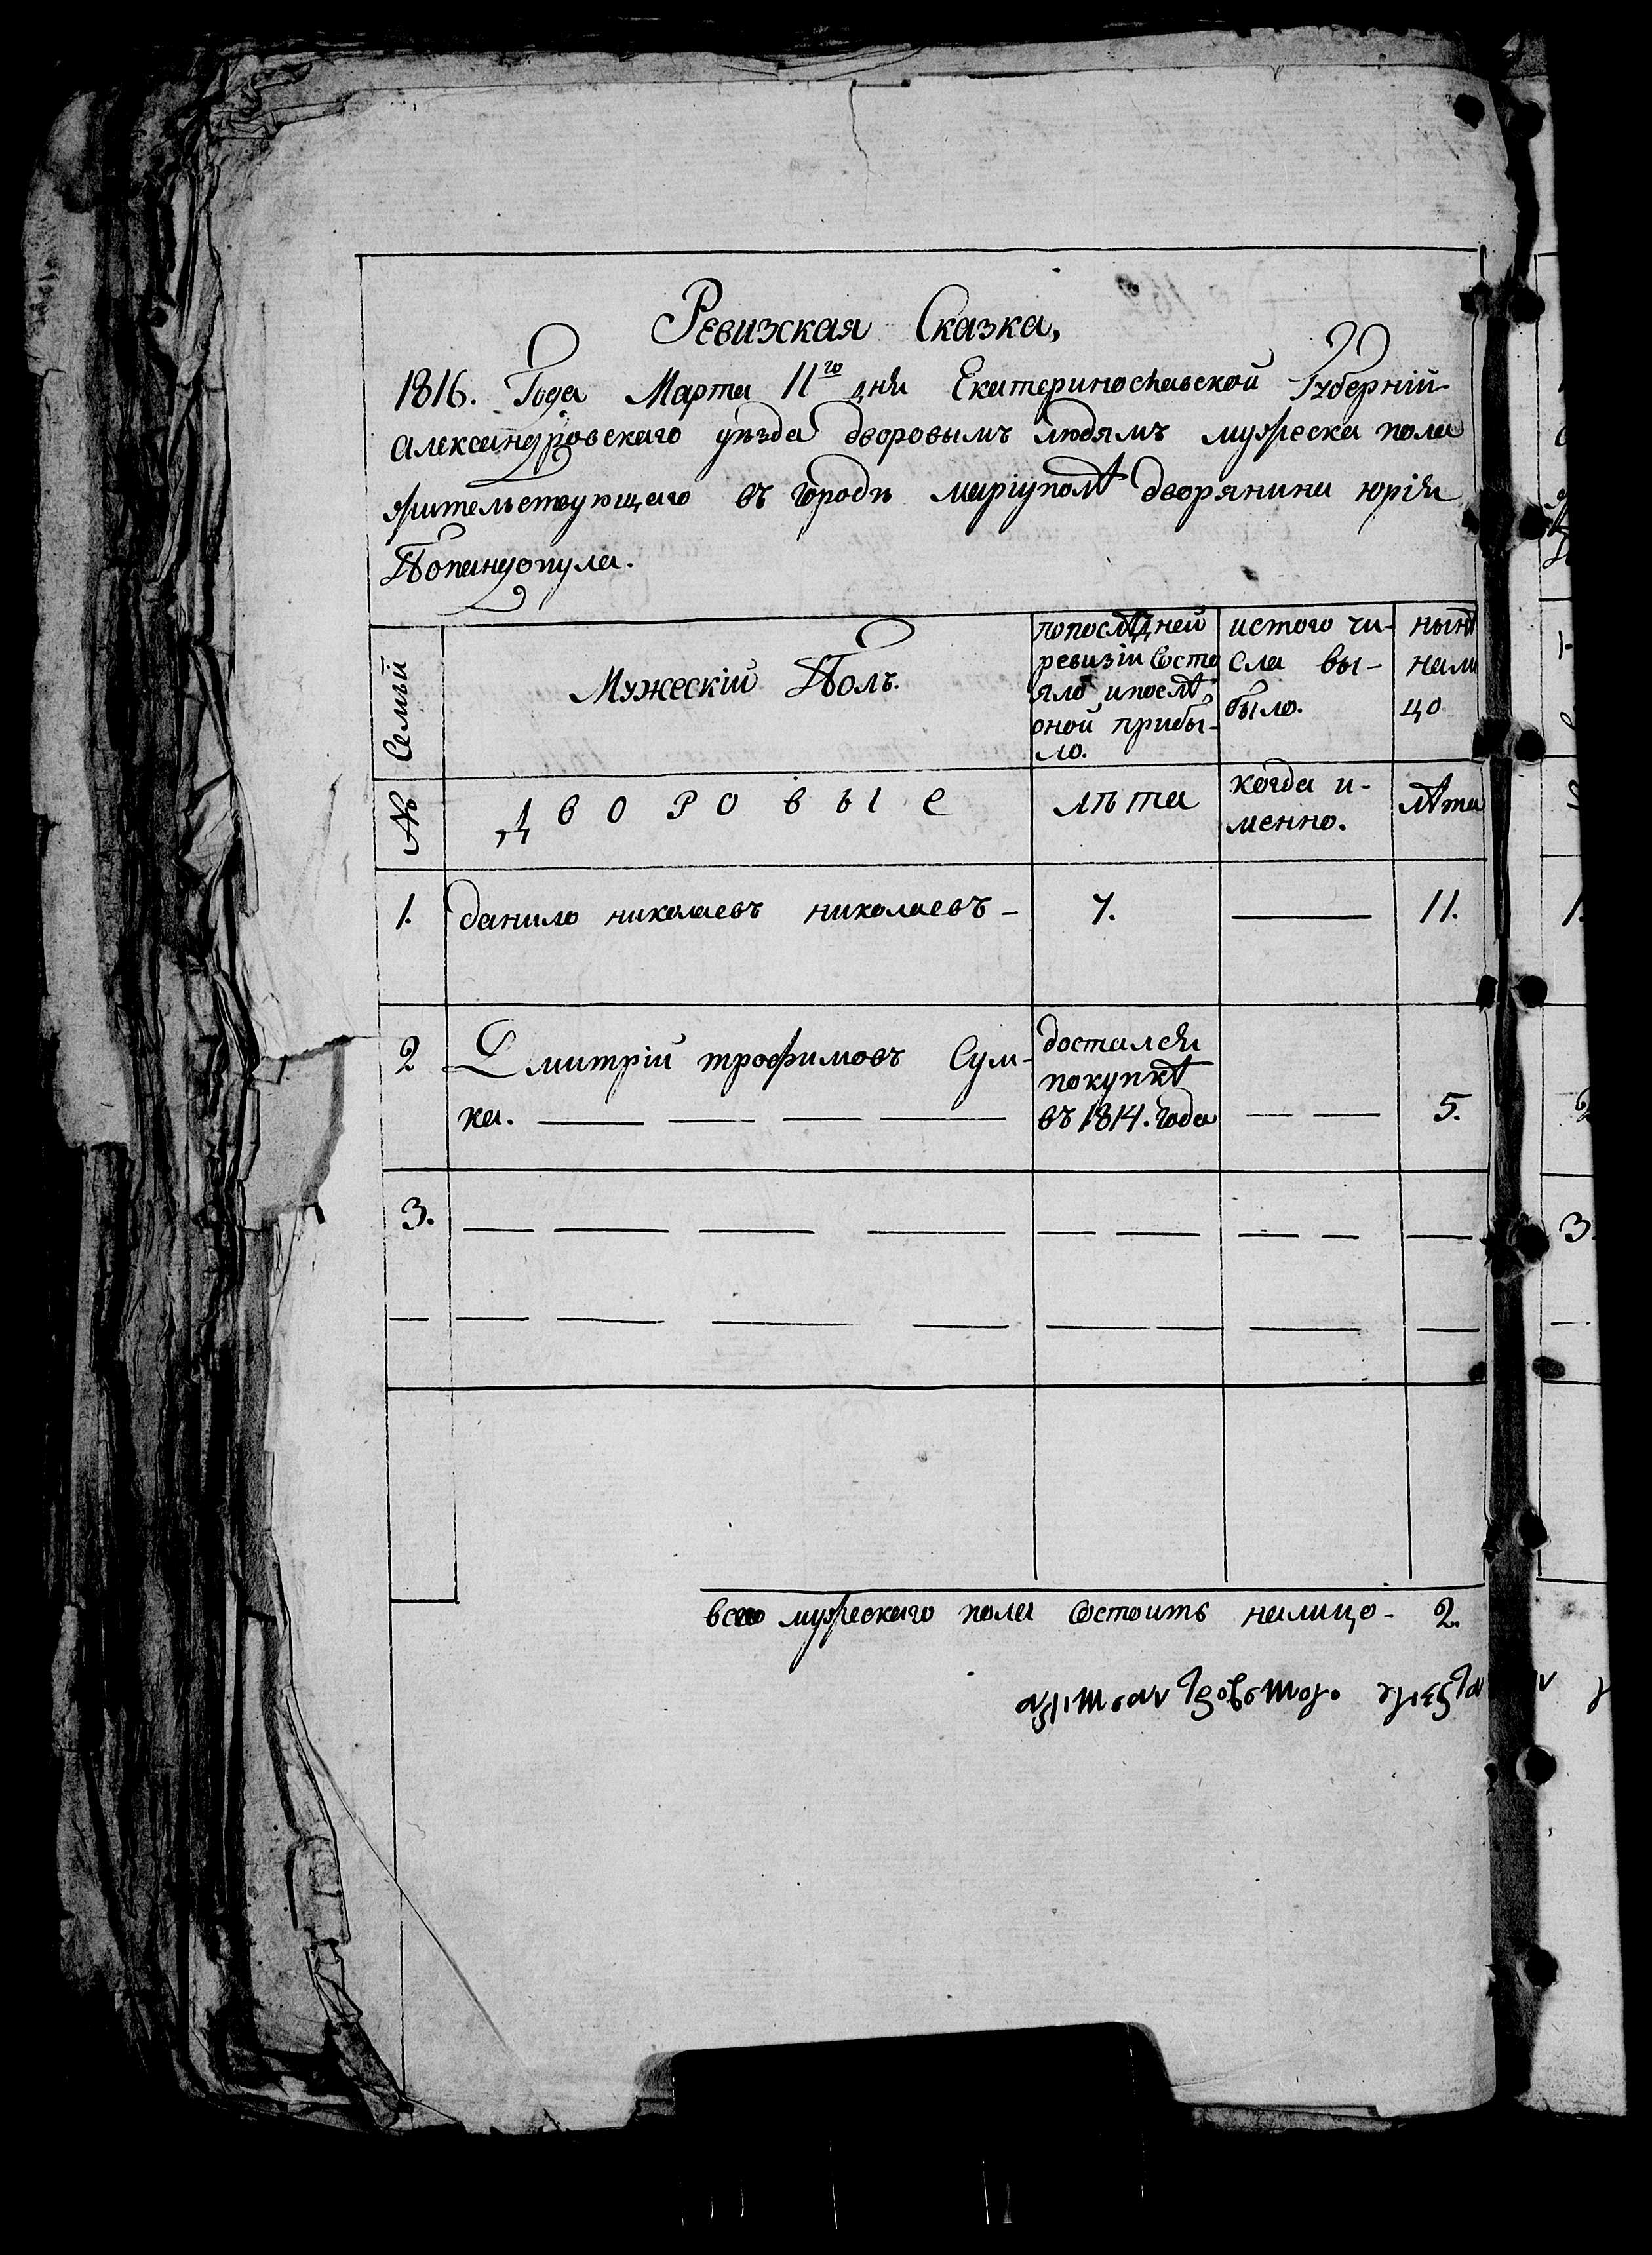 Ревизская Сказка,
1816. Года Марта 11го дня Екатеринославской Губерній
александровскаго уѣзда дворовымъ людямъ мужеска пола
жительствующаго въ городѣ маріуполѣ дворянина юрія
Попандопула.
№ Семьй
Мужескій Полъ.
попослѣдней
ревизіи Состо
яло ипослѣ
оной прибы-
ло.
истого чи-
сла вы-
было.
нынѣ
нали
цо
Дворовые
лѣта
когда и-
менно.
лѣта
1. данило николаевъ николаевъ - 7. — 11.
2 Дмитрій трофимовъ Сум-
ка. — — —
достался
покупкѣ
въ 1814. года
— — 5.
3. — — — — — — — — —
— — — — — — — — —
всего мужескаго пола Состоитъ налицо - 2.